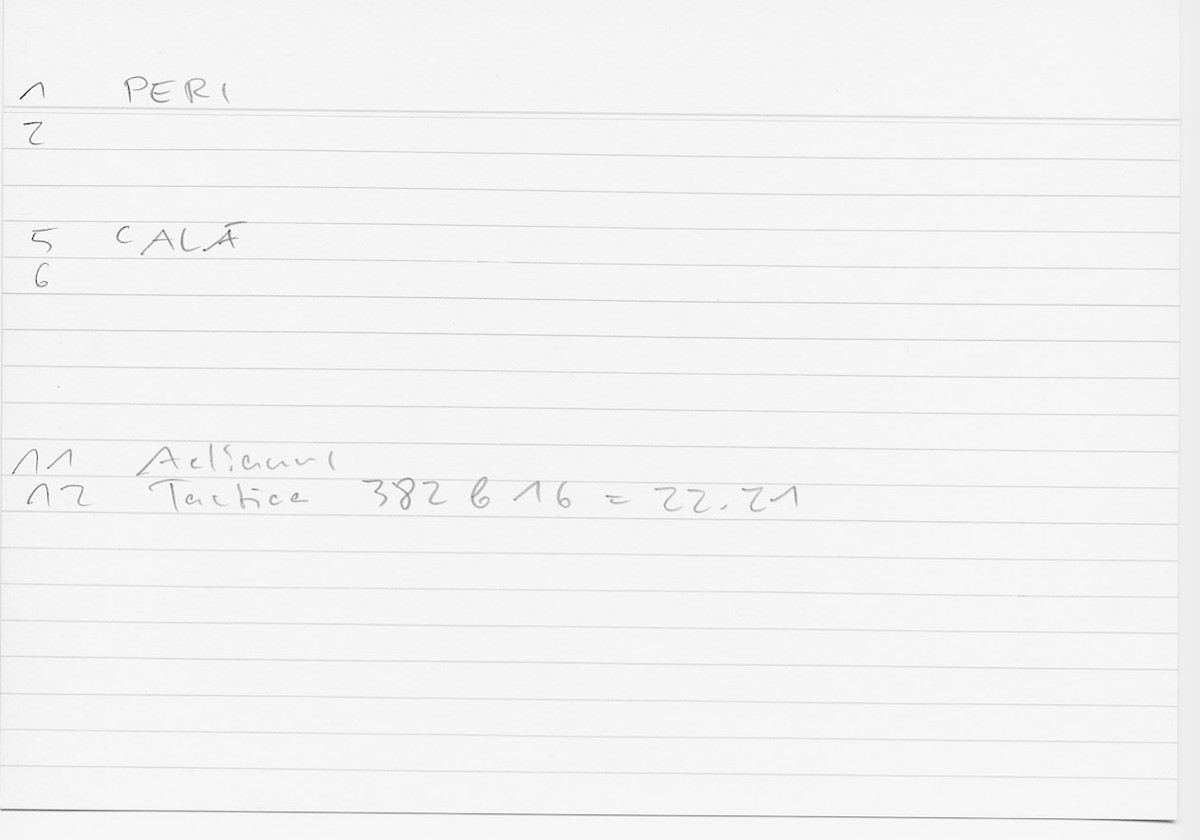 1 PERI
2
5 CALĀ
6
11 Aeliani
12 Tactica 382 b 16 = 22.21